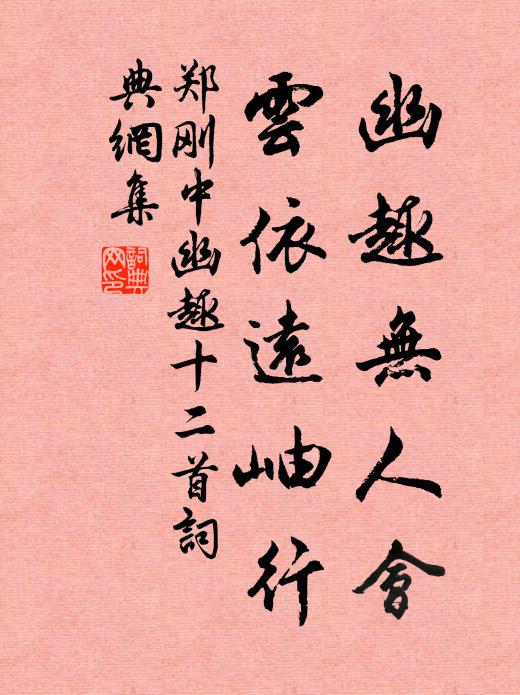 幽趣無人會
雲依遠岫行
郑刚中幽趣十二首詞
典網集
詞典
网印